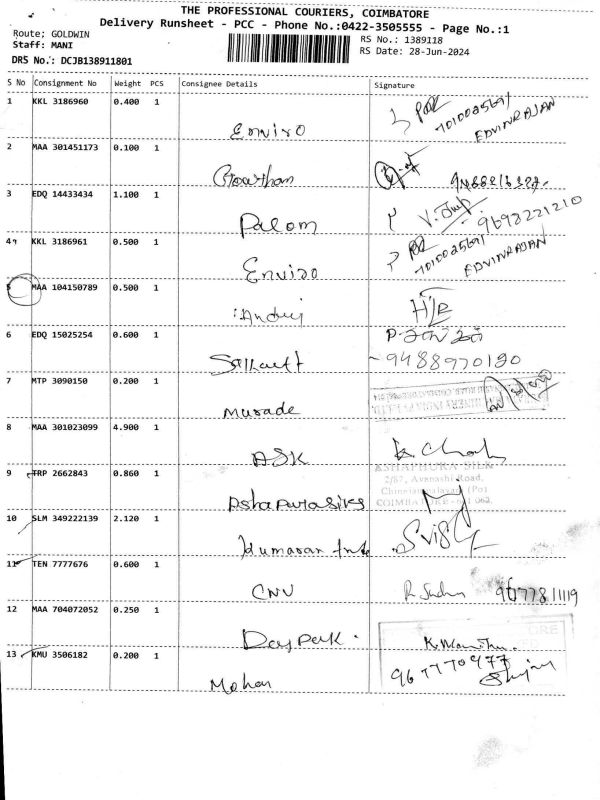 THE PROFESSIONAL COURIERS, COIMBATORE
Delivery Runsheet - PCC - Phone No.:0422-3505555 - Page No.:1
Route; GOLDWIN
Staff: MANI
RS No.: 1389118
RS Date: 28-Jun-2024
DRS No.: DCJB138911801
S No Consignment No Weight PCS Consignee Details Signature
1 KKL 3186960 0.400 1 Enviro 7010025691 EDVINRAJAN
2 MAA 301451173 0.100 1
3 EDQ 14433434 1.100 1 Palom 9698221210
4 KKL 3186961 0.500 1 Enviro 7010025691 EDVINRAJAN
5 MAA 104150789 0.500 1
6 EDQ 15025254 0.600 1 9488970190
7 MTP 3090150 0.200 1 Murade
8 MAA 301023099 4.900 1 ASK
9 TRP 2662843 0.860 1
ASHAPURA SILK
2/87, Avanashi Road,
10 SLM 349222139 2.120 1 Kumaran
11 TEN 7777676 0.600 1 CNV 9677811119
12 MAA 704072052 0.250 1 Daypark.
13 KMU 3506182 0.200 1 Mohan 9677770977